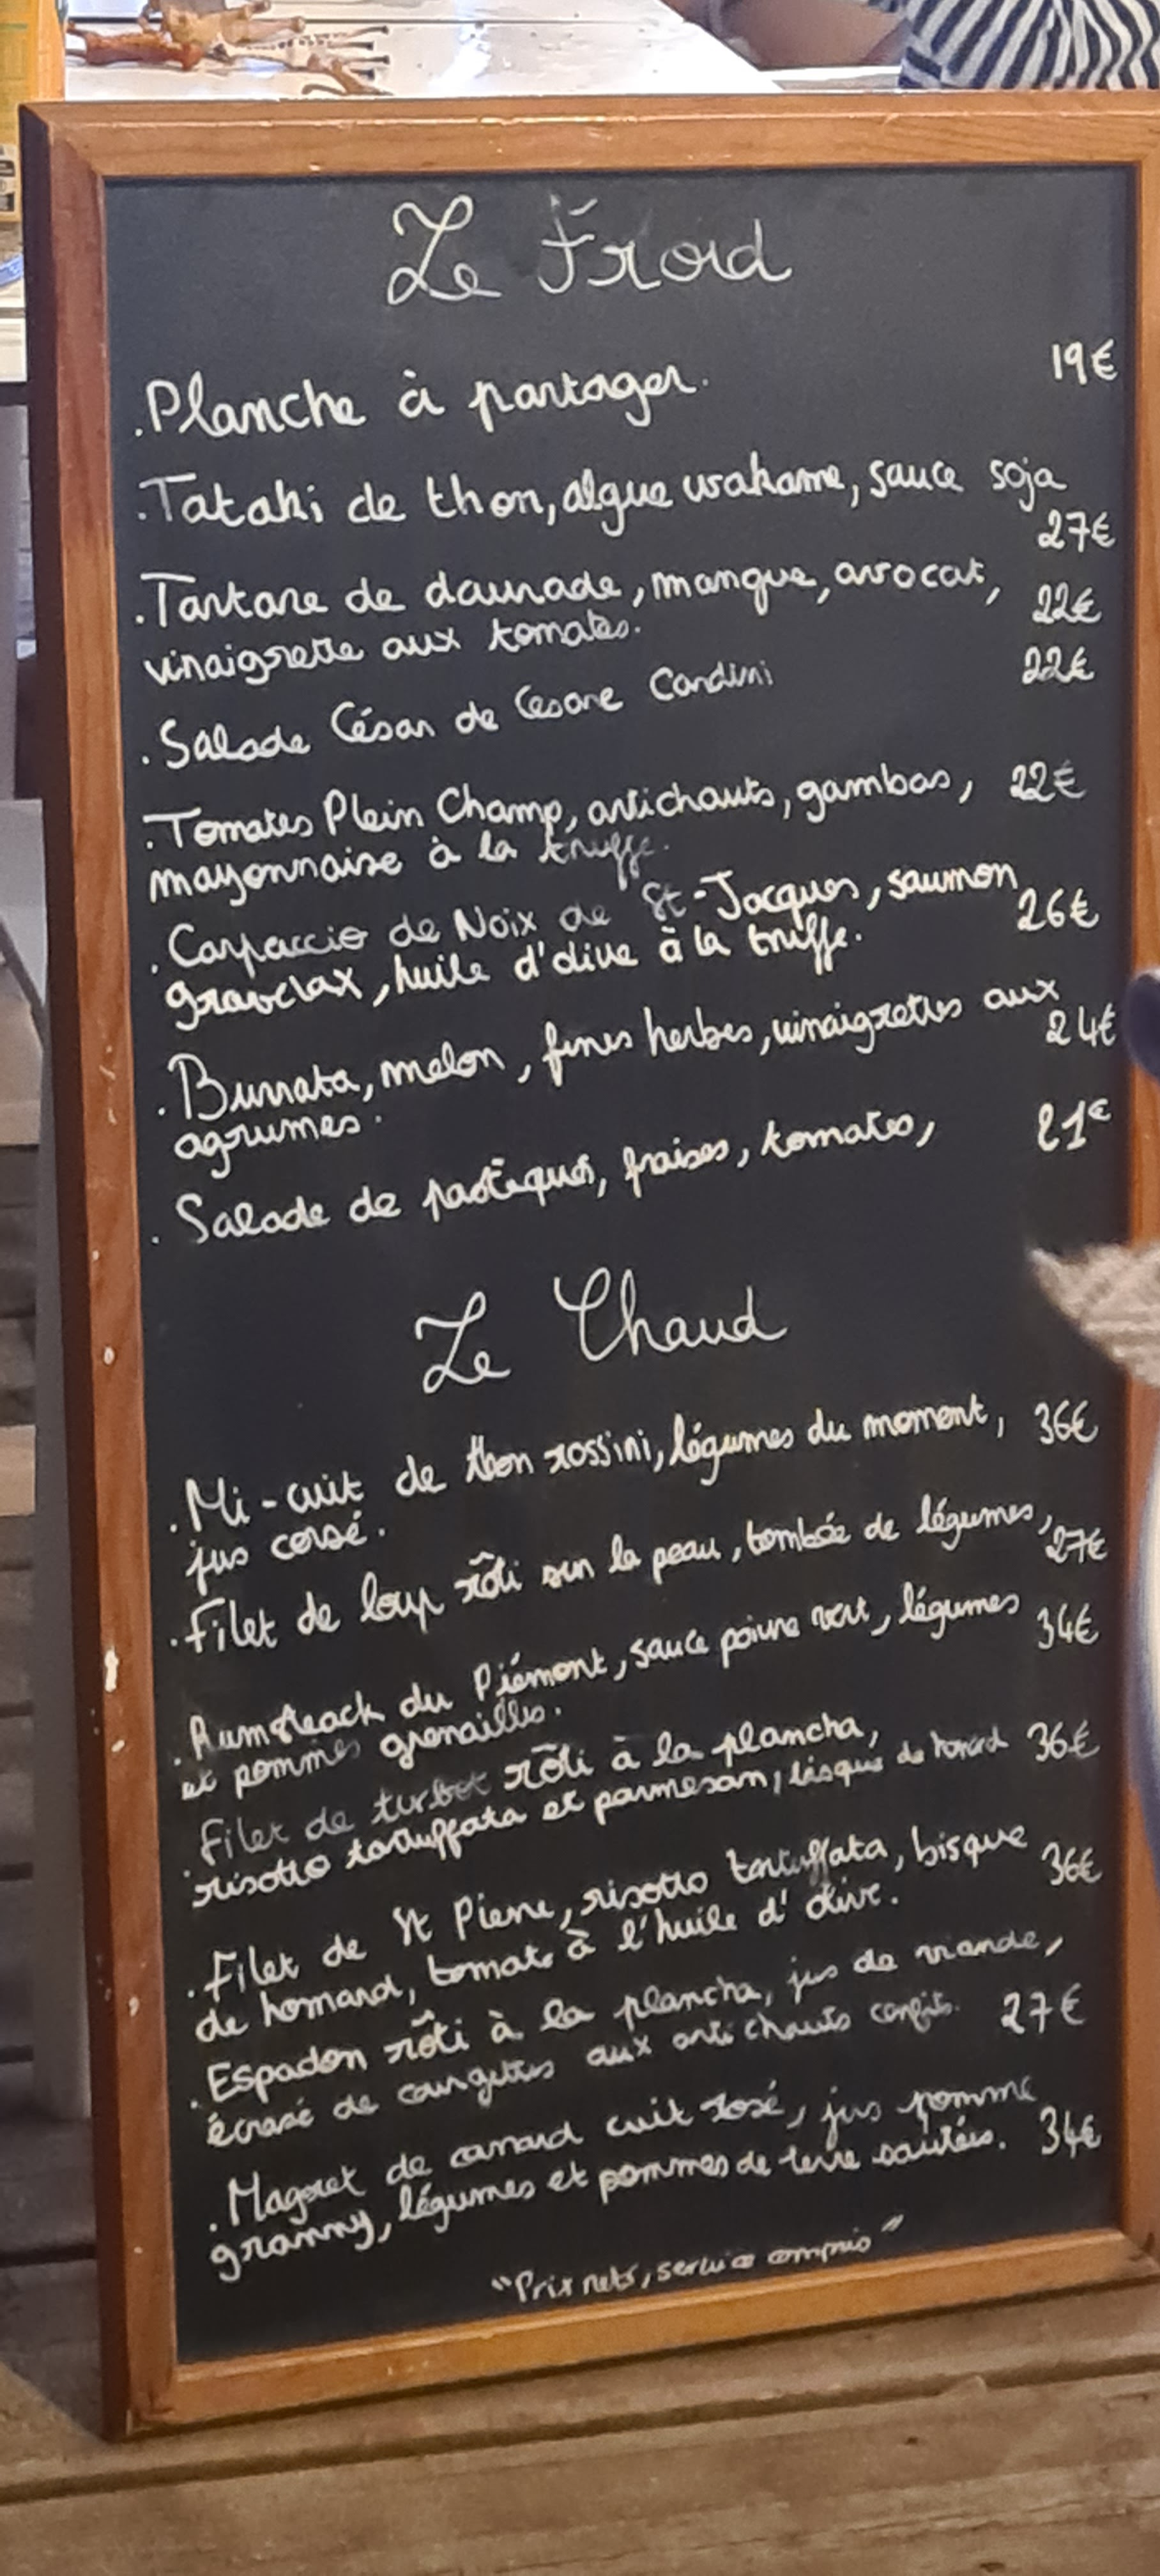 Le Froid
.Planche à partager. 19€
.Tataki de thon, algue wakame, sauce soja
27€
.Tartare de daurade, mangue, avocat, 22€
vinaigrette aux tomates.
.Salade César de Cesare Cardini 22€
.Tomates Plein Champ, artichauts, gambas, 22€
mayonnaise à la truffe.
.Carpaccio de Noix de St-Jacques, saumon 26€
gravelax, huile d'olive à la truffe.
.Burrata, melon, fines herbes, vinaigrettes aux 24€
agrumes.
.Salade de pastèques, fraises, tomates, 21€
Le Chaud
.Mi-cuit de thon rossini, légumes du moment, 36€
jus corsé.
.Filet de loup rôti sur la peau, tombée de légumes, 27€
.Rumsteack du Piémont, sauce poivre vert, légumes 34€
et pommes grenailles.
.Filet de turbot rôti à la plancha,
risotto tartuffata et parmesan, bisque de homard 36€
.Filet de St Pierre, risotto tartuffata, bisque 36€
de homard, tomate à l'huile d'olive.
.Espadon rôti à la plancha, jus de viande,
écrasé de courgettes aux artichauts confits. 27€
.Magret de canard cuit rosé, jus pomme
granny, légumes et pommes de terre sautées. 34€
"Prix nets, service compris"